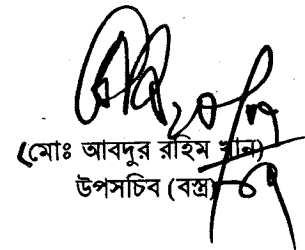 (মোঃ আবদুর রহিম খান)
উপসচিব (বস্ত্র)